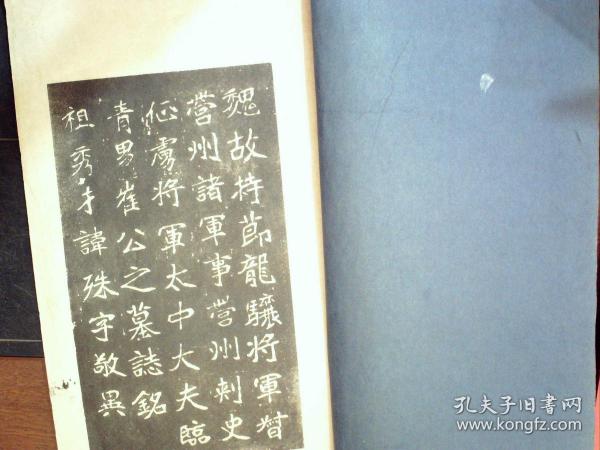 魏故持節龍驤將軍督
營州諸軍事營州刺史
征虜將軍太中大夫臨
青男崔公之墓誌銘
祖秀才諱殊字敬異
孔夫子旧書网
www.kongfz.com